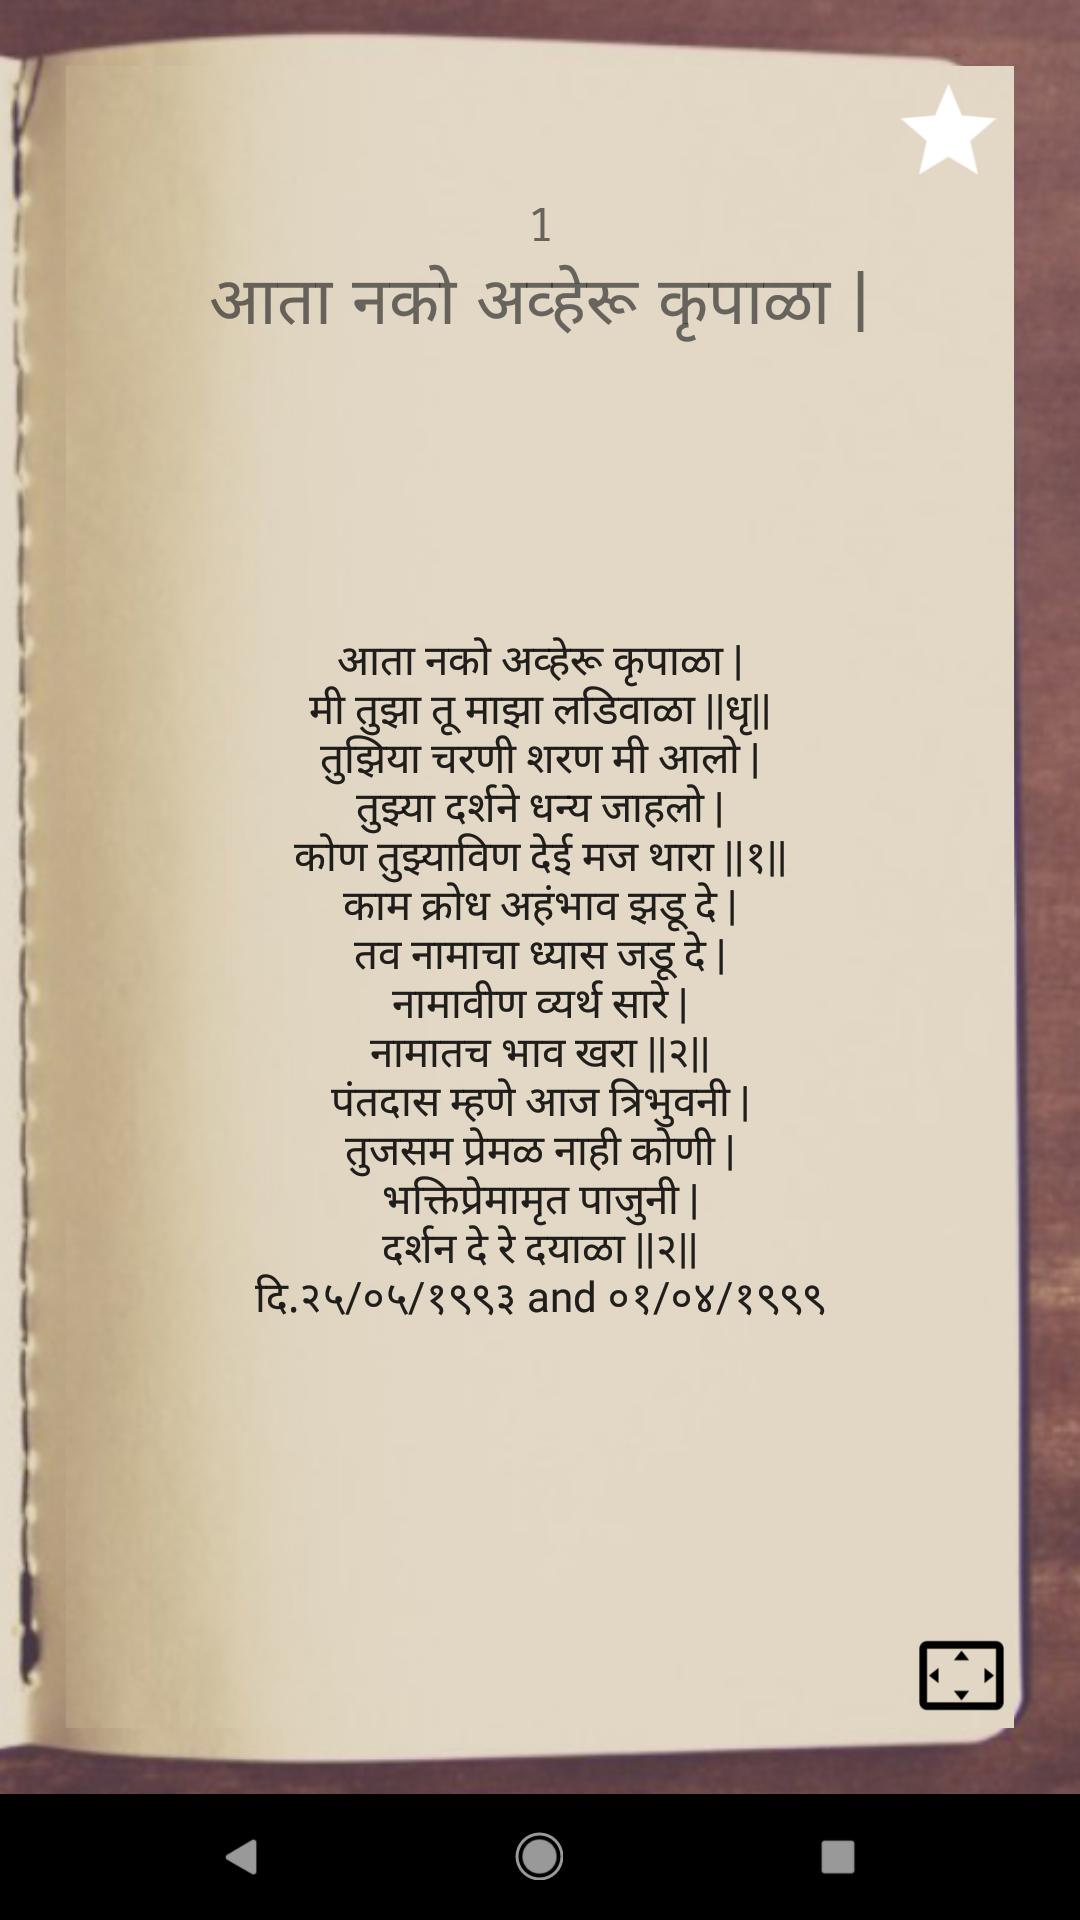 1
आता नको अव्हेरू कृपाळा |
आता नको अव्हेरू कृपाळा |
मी तुझा तू माझा लडिवाळा ||धृ||
तुझिया चरणी शरण मी आलो |
तुझ्या दर्शने धन्य जाहलो |
कोण तुझ्याविण देई मज थारा ||१||
काम क्रोध अहंभाव झडू दे |
तव नामाचा ध्यास जडू दे |
नामावीण व्यर्थ सारे |
नामातच भाव खरा ||२||
पंतदास म्हणे आज त्रिभुवनी |
तुजसम प्रेमळ नाही कोणी |
भक्तिप्रेमामृत पाजुनी |
दर्शन दे रे दयाळा ||२||
दि.२५/०५/१९९३ and ०१/०४/१९९९